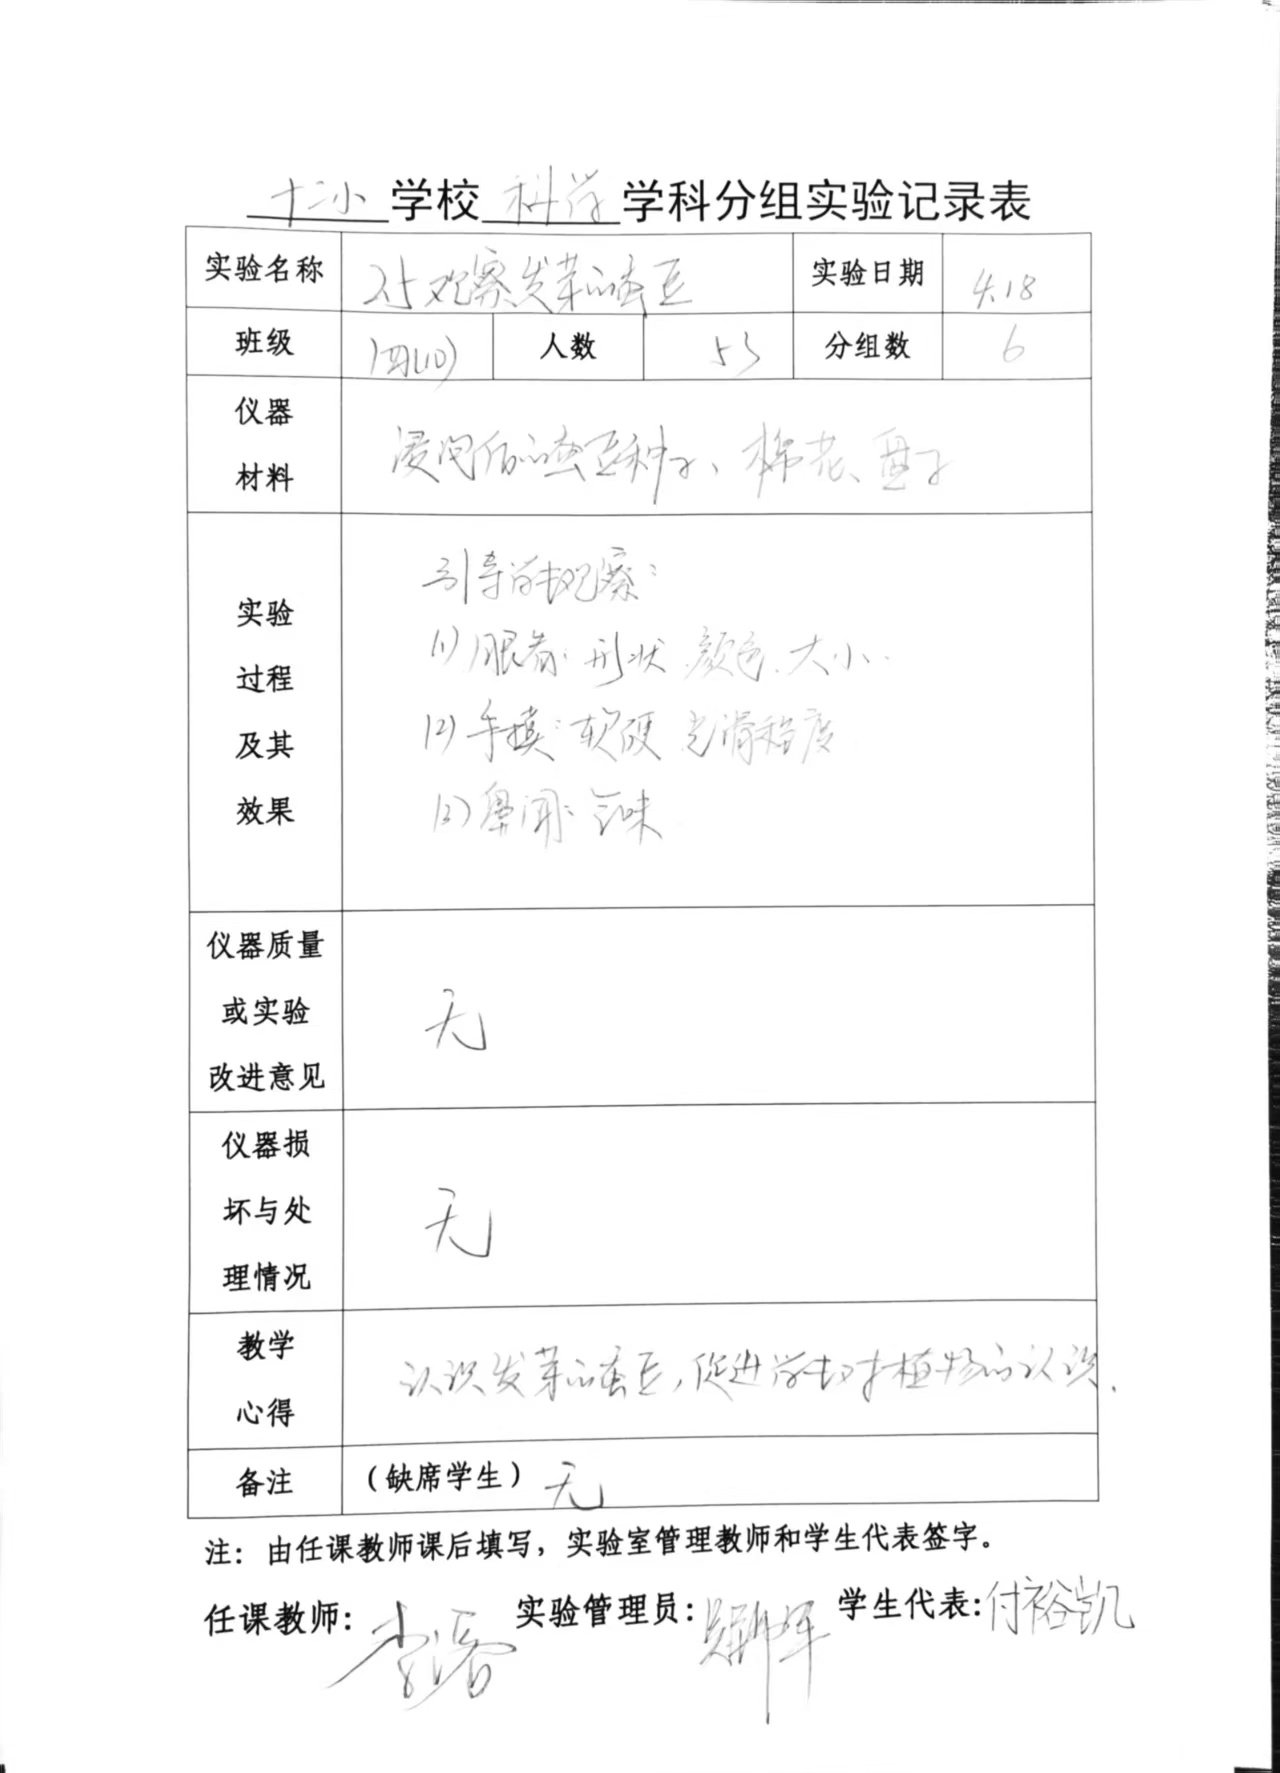 十二小 学校 科学 学科分组实验记录表
实验名称 2.5观察发芽的蚕豆 实验日期 4.18
班级 四(10) 人数 53 分组数 6
仪器
材料
浸泡后的蚕豆种子、棉花、盘子
实验
过程
及其
效果
引导学生观察:
(1)眼看:形状、颜色、大小.
(2)手摸:软硬 光滑程度
(3)鼻闻:气味
仪器质量
或实验
改进意见
无
仪器损
坏与处
理情况
无
教学
心得
认识发芽的蚕豆,促进学生对植物的认识.
备注 (缺席学生) 无
注：由任课教师课后填写，实验室管理教师和学生代表签字。
任课教师: 实验管理员: 学生代表:付裕凯